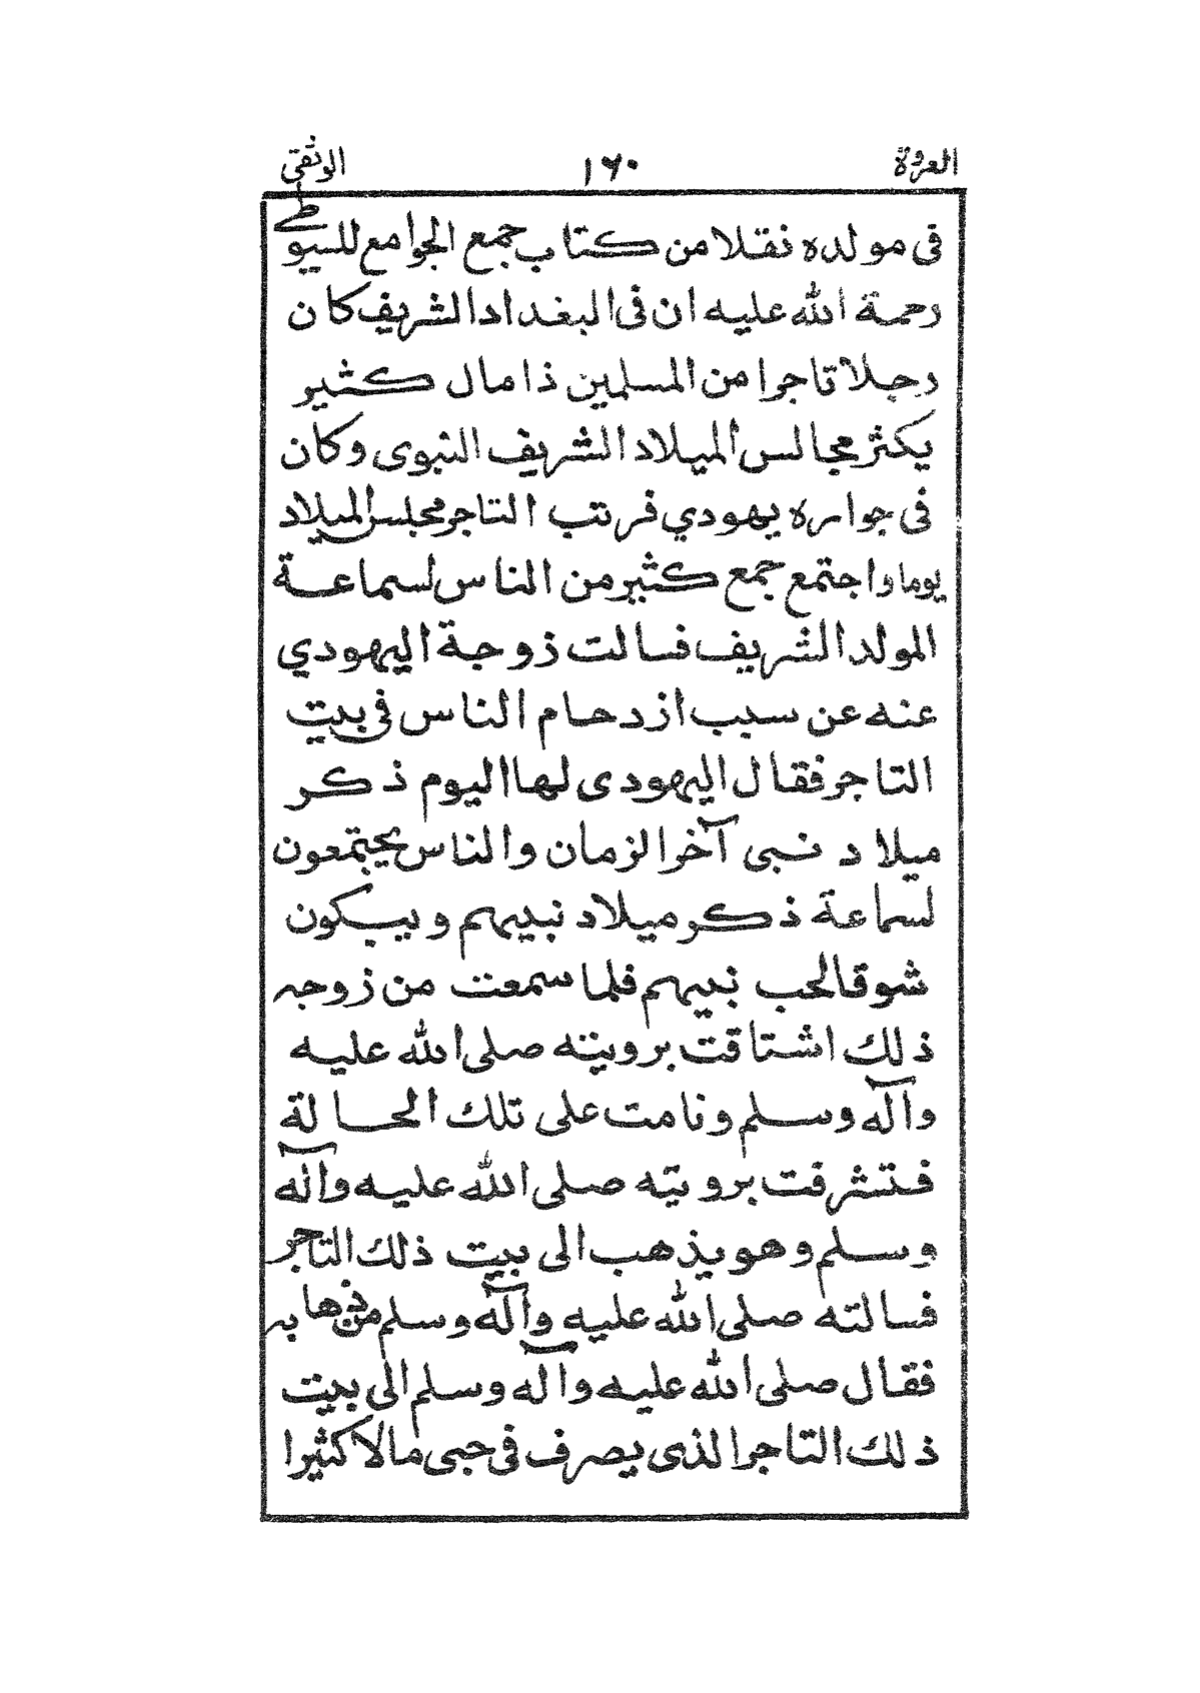 العروة ١٦٠ الوثقى
فى مولده نقلا من كتاب جمع الجوامع للسيوطے
رحمة الله عليه ان فى البغداد الشريف كان
رجلا تاجرا من المسلمين ذا مال كثير
يكثر مجالس الميلاد الشريف النبوى وكان
فى جواره يهودي فرتب التاجر مجلس الميلاد
يوما واجتمع جمع كثير من الناس لسماعة
المولد الشريف فسالت زوجة اليهودي
عنه عن سبب ازدحام الناس فى بيت
التاجر فقال اليهودى لها اليوم ذكر
ميلاد نبى آخر الزمان والناس يجتمعون
لسماعة ذكر ميلاد نبيهم ويبكون
شوقا لحب نبيهم فلما سمعت من زوجه
ذلك اشتاقت برويته صلى الله عليه
وآله وسلم ونامت على تلك الحالة
فتشرفت برويته صلى الله عليه وآله
وسلم وهو يذهب الى بيت ذلك التاجر
فسالته صلى الله عليه وآله وسلم من ذهابه
فقال صلى الله عليه وآله وسلم الى بيت
ذلك التاجر الذى يصرف فى حبى مالا كثيرا